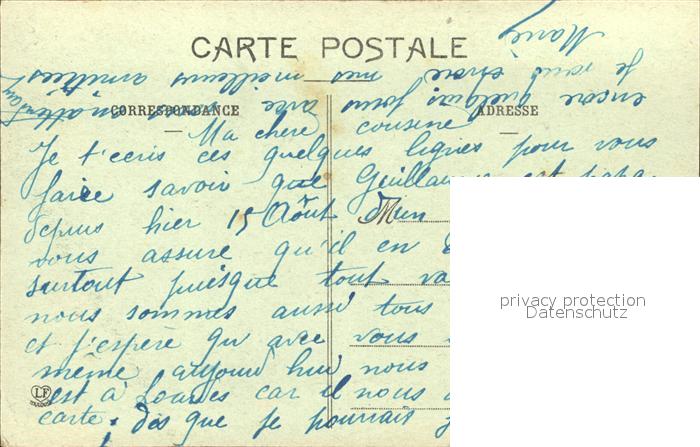 CARTE POSTALE
CORRESPONDANCE
ADRESSE
Ma chère cousine
Je t'ecris ces quelques lignes pour vous
faire savoir que Guillaume est papa
depuis hier 15 Août d'un
vous assure qu'il en
surtout puisque tout va
nous sommes aussi tous
et j'espère qu'avec vous
même aujourd'hui nous
est à Lourdes car il nous
carte; dès que je pourrait
encore quelques jours avec
Je vous envoie mes meilleures amitiés
Marie
LF
privacy protection
Datenschutz